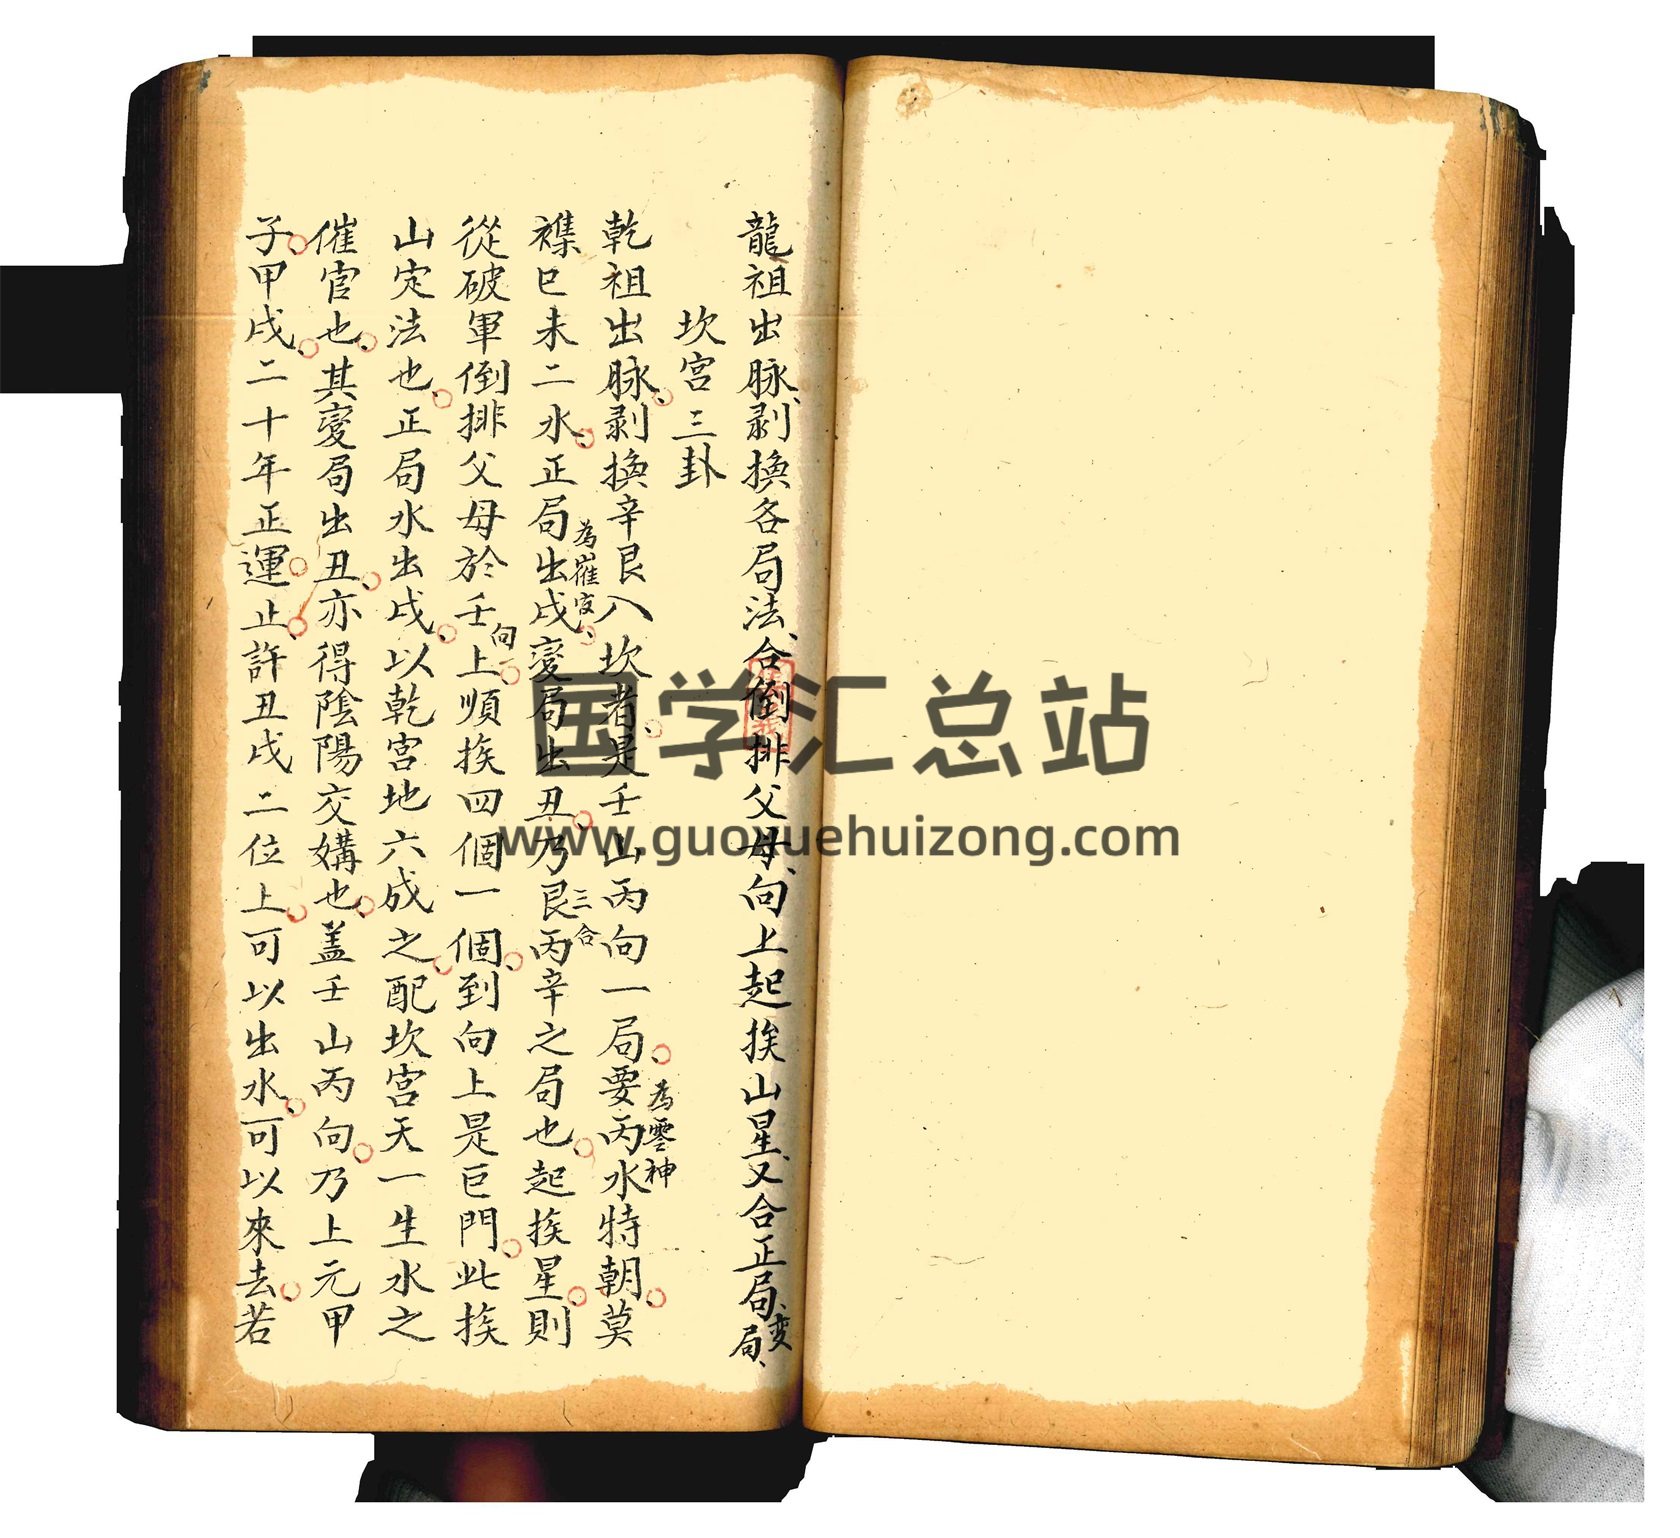 龍祖出脉剥換各局法合倒排父母向上起挨山星又合正局變局
坎宮三卦
乾祖出脉剥換辛艮入坎者是壬山丙向一局要丙水特朝莫
為零神
襍巳未二水正局出戌變局出丑乃艮丙辛之局也起挨星則
為催官
三合
從破軍倒排父母於壬上順挨四個一個到向上是巨門此挨
向
山定法也正局水出戌以乾宮地六成之配坎宮天一生水之
催官也其變局出丑亦得陰陽交媾也蓋壬山丙向乃上元甲
子甲戌二十年正運止許丑戌二位上可以出水可以來去若
国学汇总站
www.guoxuehuizong.com